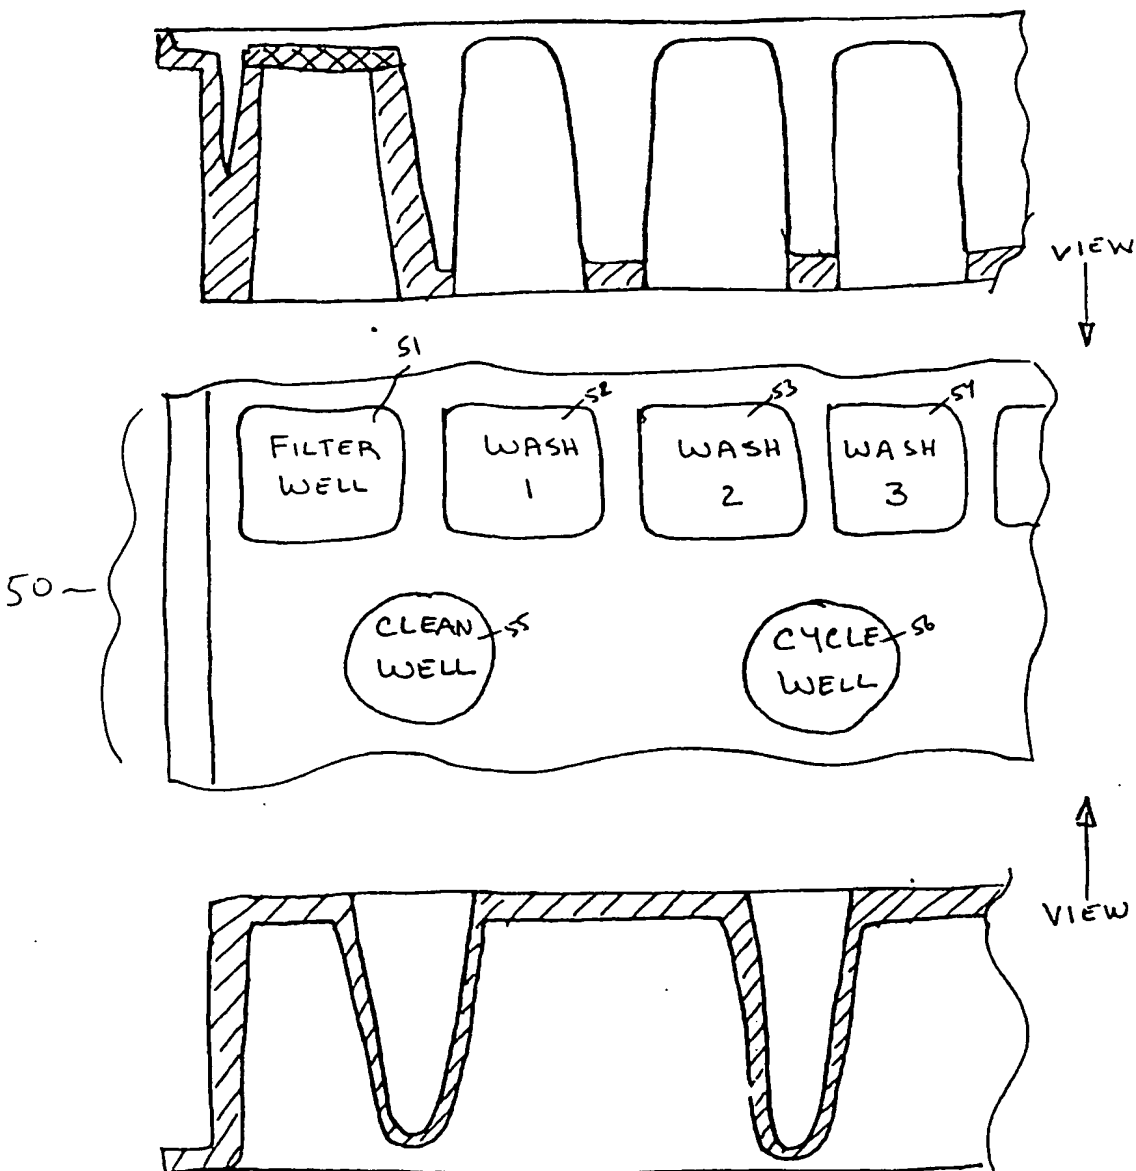 VIEW
51
FILTER
WELL
52
WASH
1
53
WASH
2
54
WASH
3
50
CLEAN
WELL
55
CYCLE
WELL
56
VIEW